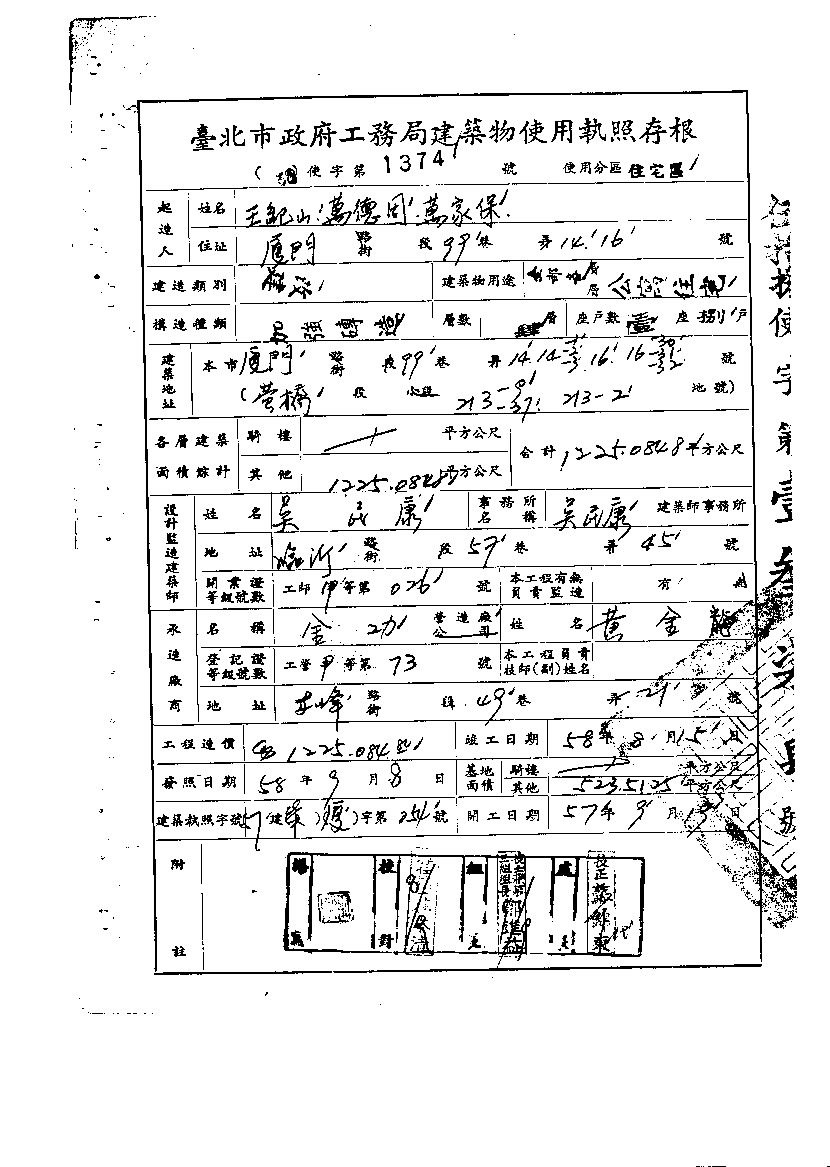 臺北市政府工務局建築物使用執照存根
使字第 1374 號 使用分區 住宅區
起造人 姓名 王紀山 萬德周 萬家保
住址 厦門 路街 段 99 巷 弄 14. 16 號
建造類別 建築物用途 公寓住宅
構造種類 加強磚造 層數 層 座戶數 壹 座 捌 戶
建築地址 本市 厦門 路街 段 99 巷 弄 14 14 16 16 號
(螢橋 段 小段 213 213-2 地號)
各層建築面積綜計 騎樓 平方公尺 合計 1225.0848 平方公尺
其他 1225.0848 平方公尺
設計監造建築師 姓名 吳民康 事務所名稱 吳民康 建築師事務所
地址 臨沂 路街 段 57 巷 弄 45 號
開業證等級號數 工師 甲 等第 026 號 本工程有無負責監造 有 無
承造廠商 名稱 金功 營造廠公司 姓名 黃金龍
登記證等級號數 工營 甲 等第 73 號 本工程負責技師(副)姓名
地址 路街 段 49 巷 弄 21 號
工程造價 1225.084 竣工日期 58 年 8 月 15 日
發照日期 58 年 9 月 8 日 基地面積 騎樓 平方公尺
其他 523.5125 平方公尺
建築執照字號 57 建 字第 251 號 開工日期 57 年 9 月 日
附註
校對
組主
校正
代
使字第壹
號